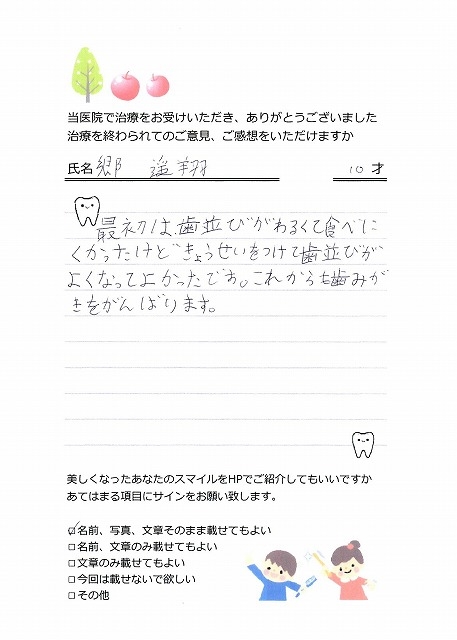 当医院で治療をお受けいただき、ありがとうございました
治療を終わられてのご意見、ご感想をいただけますか
氏名 郷 遥翔 10 才
最初は、歯並びがわるくて食べに
くかったけどきょうせいをつけて歯並びが
よくなってよかったです。これからも歯みが
きをがんばります。
美しくなったあなたのスマイルをHPでご紹介してもいいですか
あてはまる項目にサインをお願い致します。
☑名前、写真、文章そのまま載せてもよい
□名前、文章のみ載せてもよい
□文章のみ載せてもよい
□今回は載せないで欲しい
□その他